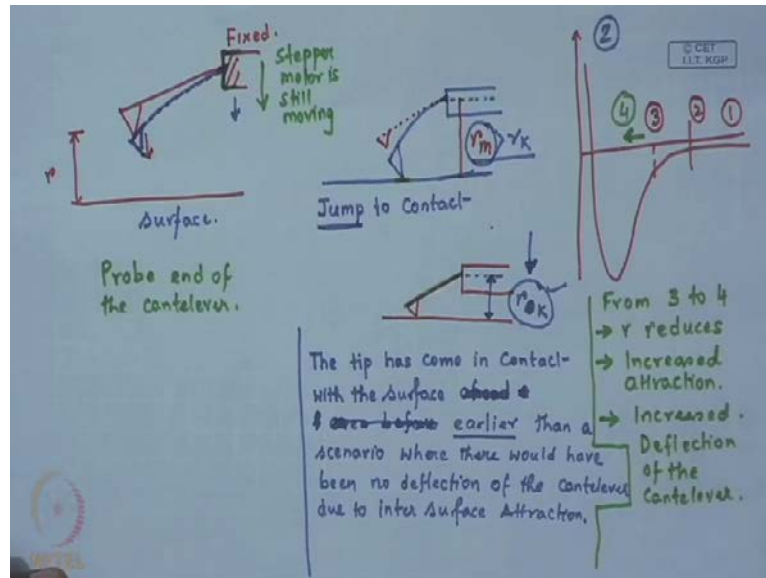 Fixed.
stepper
motor is
still
moving
r
Surface.
Probe end of
the cantelever.
rm > rK
Jump to Contact
rK
The tip has come in Contact
with the surface ahead
earlier than a
scenario where there would have
been no deflection of the cantelever
due to inter Surface Attraction.
2
© CET
I.I.T. KGP
4 3 2 1
From 3 to 4
→ r reduces
→ Increased
attraction.
→ Increased.
Deflection
of the
Cantelever.
NPTEL